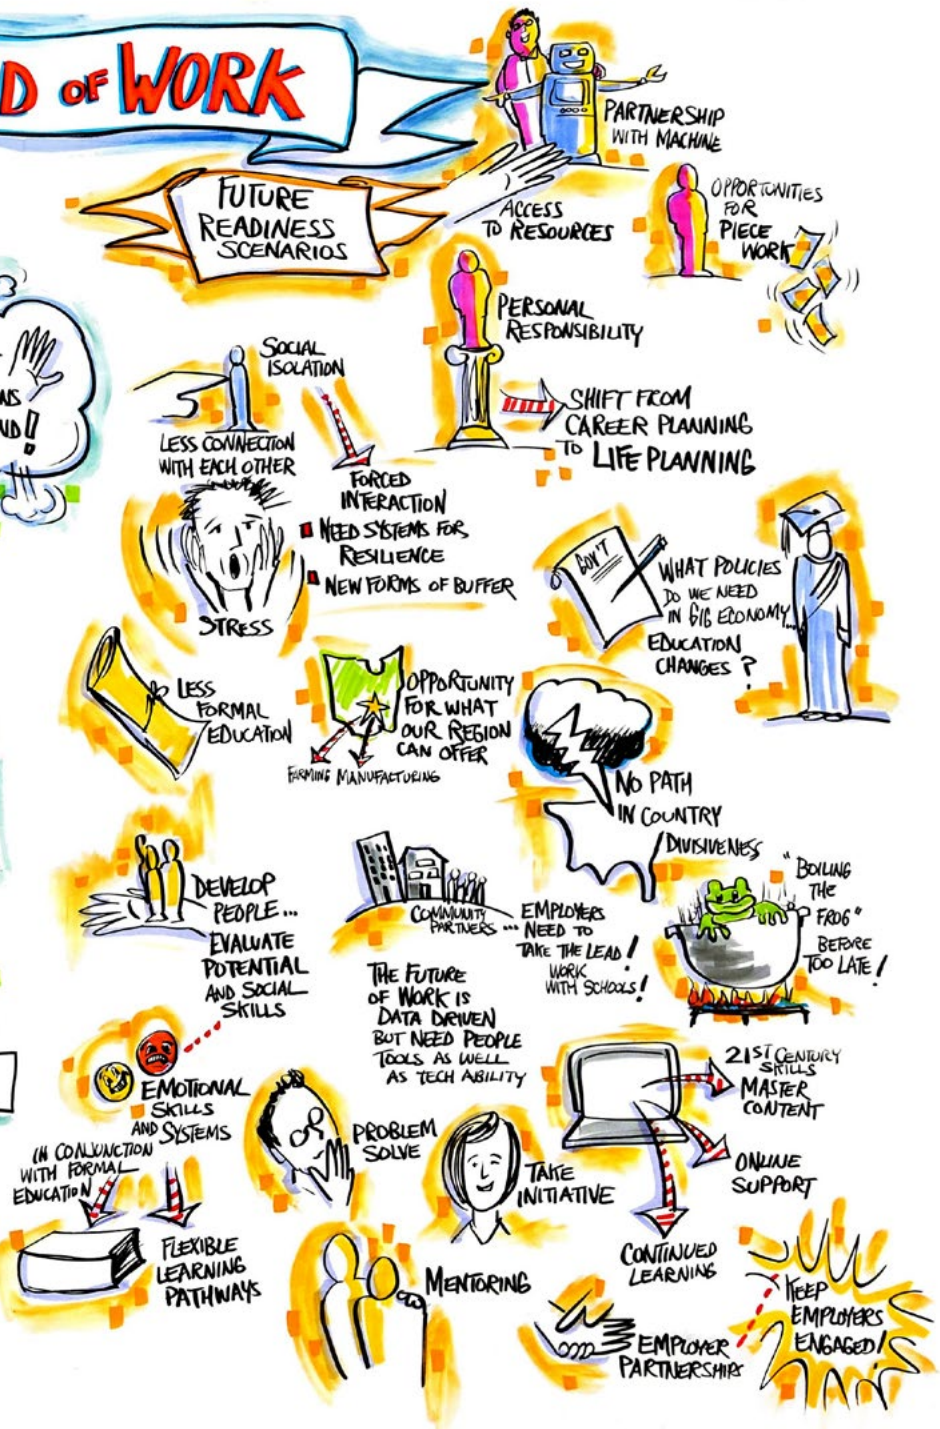 D OF WORK
PARTNERSHIP
WITH MACHINE
FUTURE
READINESS
SCENARIOS
ACCESS
TO RESOURCES
OPPORTUNITIES
FOR
PIECE
WORK
PERSONAL
RESPONSIBILITY
SHIFT FROM
CAREER PLANNING
TO LIFE PLANNING
SOCIAL
ISOLATION
LESS CONNECTION
WITH EACH OTHER
FORCED
INTERACTION
NEED SYSTEMS FOR
RESILIENCE
NEW FORMS OF BUFFER
STRESS
GOV'T
WHAT POLICIES
DO WE NEED
IN GIG ECONOMY...
EDUCATION
CHANGES?
LESS
FORMAL
EDUCATION
OPPORTUNITY
FOR WHAT
OUR REGION
CAN OFFER
FARMING MANUFACTURING
NO PATH
IN COUNTRY
DIVISIVENESS
"BOILING
THE
FROG"
BEFORE
TOO LATE!
DEVELOP
PEOPLE...
EVALUATE
POTENTIAL
AND SOCIAL
SKILLS
COMMUNITY
PARTNERS...
EMPLOYERS
NEED TO
TAKE THE LEAD!
WORK
WITH SCHOOLS!
THE FUTURE
OF WORK IS
DATA DRIVEN
BUT NEED PEOPLE
TOOLS AS WELL
AS TECH ABILITY
EMOTIONAL
SKILLS
AND SYSTEMS
IN CONJUNCTION
WITH FORMAL
EDUCATION
FLEXIBLE
LEARNING
PATHWAYS
PROBLEM
SOLVE
TAKE
INITIATIVE
MENTORING
21ST CENTURY
SKILLS
MASTER
CONTENT
ONLINE
SUPPORT
CONTINUED
LEARNING
EMPLOYER
PARTNERSHIPS
KEEP
EMPLOYERS
ENGAGED!